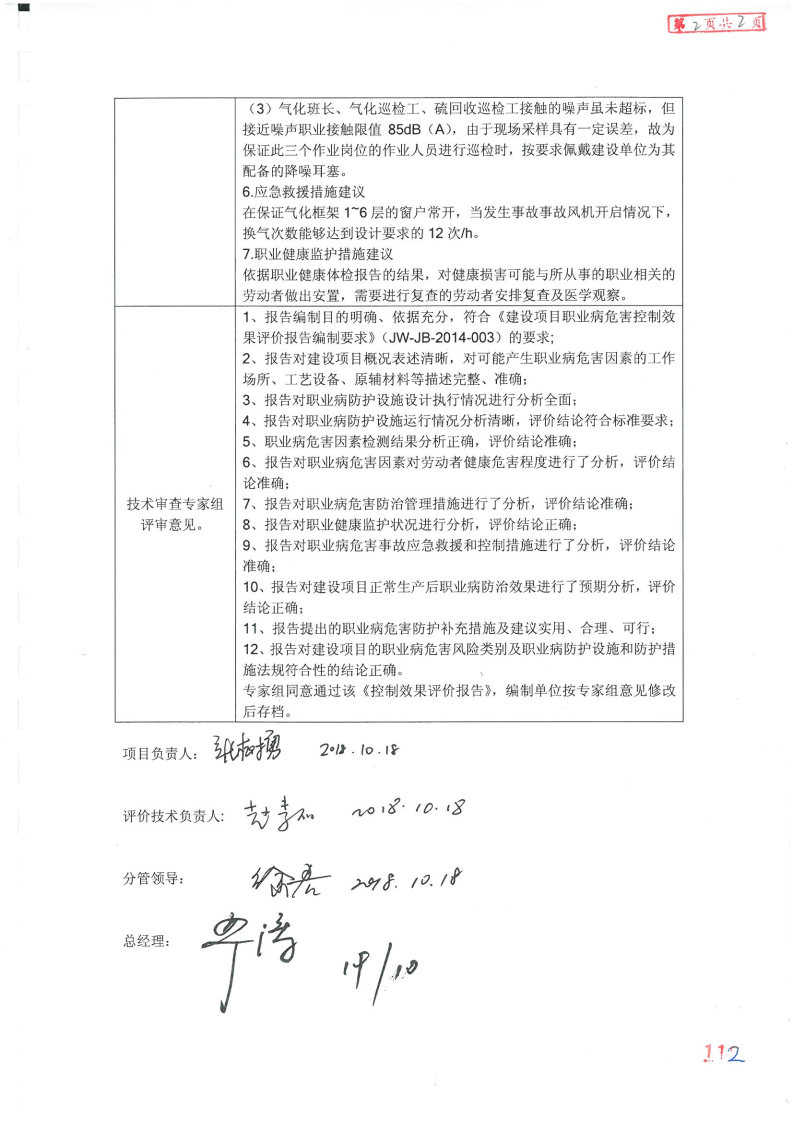 第2页共2页
（3）气化班长、气化巡检工、硫回收巡检工接触的噪声虽未超标，但
接近噪声职业接触限值 85dB（A），由于现场采样具有一定误差，故为
保证此三个作业岗位的作业人员进行巡检时，按要求佩戴建设单位为其
配备的降噪耳塞。
6.应急救援措施建议
在保证气化框架 1~6 层的窗户常开，当发生事故事故风机开启情况下，
换气次数能够达到设计要求的 12 次/h。
7.职业健康监护措施建议
依据职业健康体检报告的结果，对健康损害可能与所从事的职业相关的
劳动者做出安置，需要进行复查的劳动者安排复查及医学观察。
技术审查专家组
评审意见。
1、报告编制目的明确、依据充分，符合《建设项目职业病危害控制效
果评价报告编制要求》（JW-JB-2014-003）的要求;
2、报告对建设项目概况表述清晰，对可能产生职业病危害因素的工作
场所、工艺设备、原辅材料等描述完整、准确；
3、报告对职业病防护设施设计执行情况进行分析全面；
4、报告对职业病防护设施运行情况分析清晰，评价结论符合标准要求；
5、职业病危害因素检测结果分析正确，评价结论准确；
6、报告对职业病危害因素对劳动者健康危害程度进行了分析，评价结
论准确；
7、报告对职业病危害防治管理措施进行了分析，评价结论准确；
8、报告对职业健康监护状况进行分析，评价结论正确；
9、报告对职业病危害事故应急救援和控制措施进行了分析，评价结论
准确；
10、报告对建设项目正常生产后职业病防治效果进行了预期分析，评价
结论正确；
11、报告提出的职业病危害防护补充措施及建议实用、合理、可行；
12、报告对建设项目的职业病危害风险类别及职业病防护设施和防护措
施法规符合性的结论正确。
专家组同意通过该《控制效果评价报告》，编制单位按专家组意见修改
后存档。
项目负责人： 2018.10.18
评价技术负责人: 2018.10.18
分管领导： 2018.10.18
总经理： 19/10
112